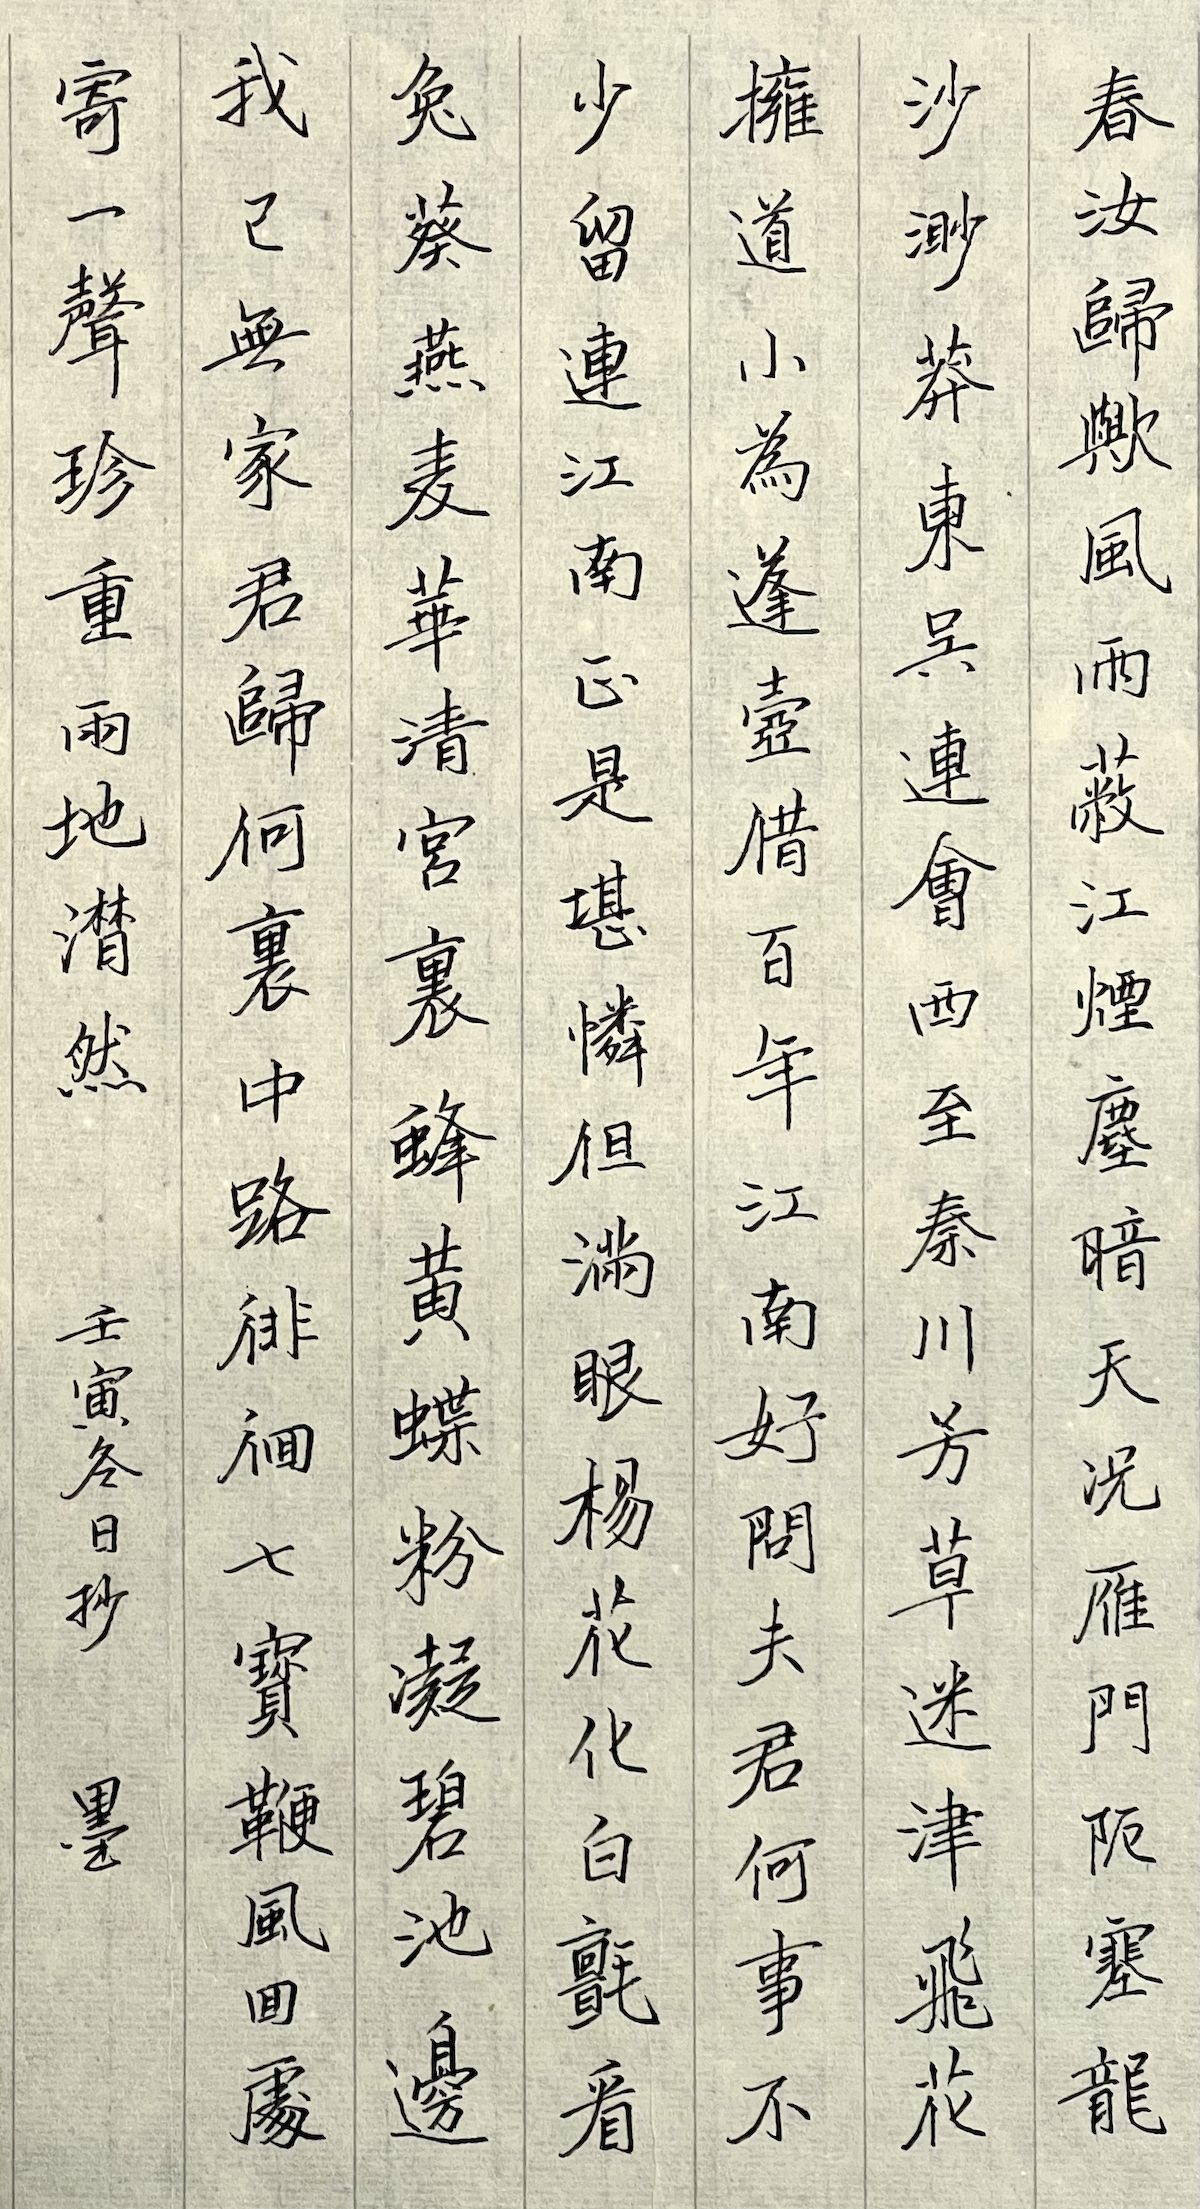 春汝歸歟風雨蔽江煙塵暗天況雁門阨塞龍
沙渺莽東吳連會西至秦川芳草迷津飛花
擁道小為蓬壺借百年江南好問夫君何事不
少留連江南正是堪憐但滿眼楊花化白氈看
兔葵燕麦華清宮裏蜂黃蝶粉凝碧池邊
我已無家君歸何裏中路徘徊七寶鞭風回處
寄一聲珍重兩地潸然
壬寅冬日抄
墨